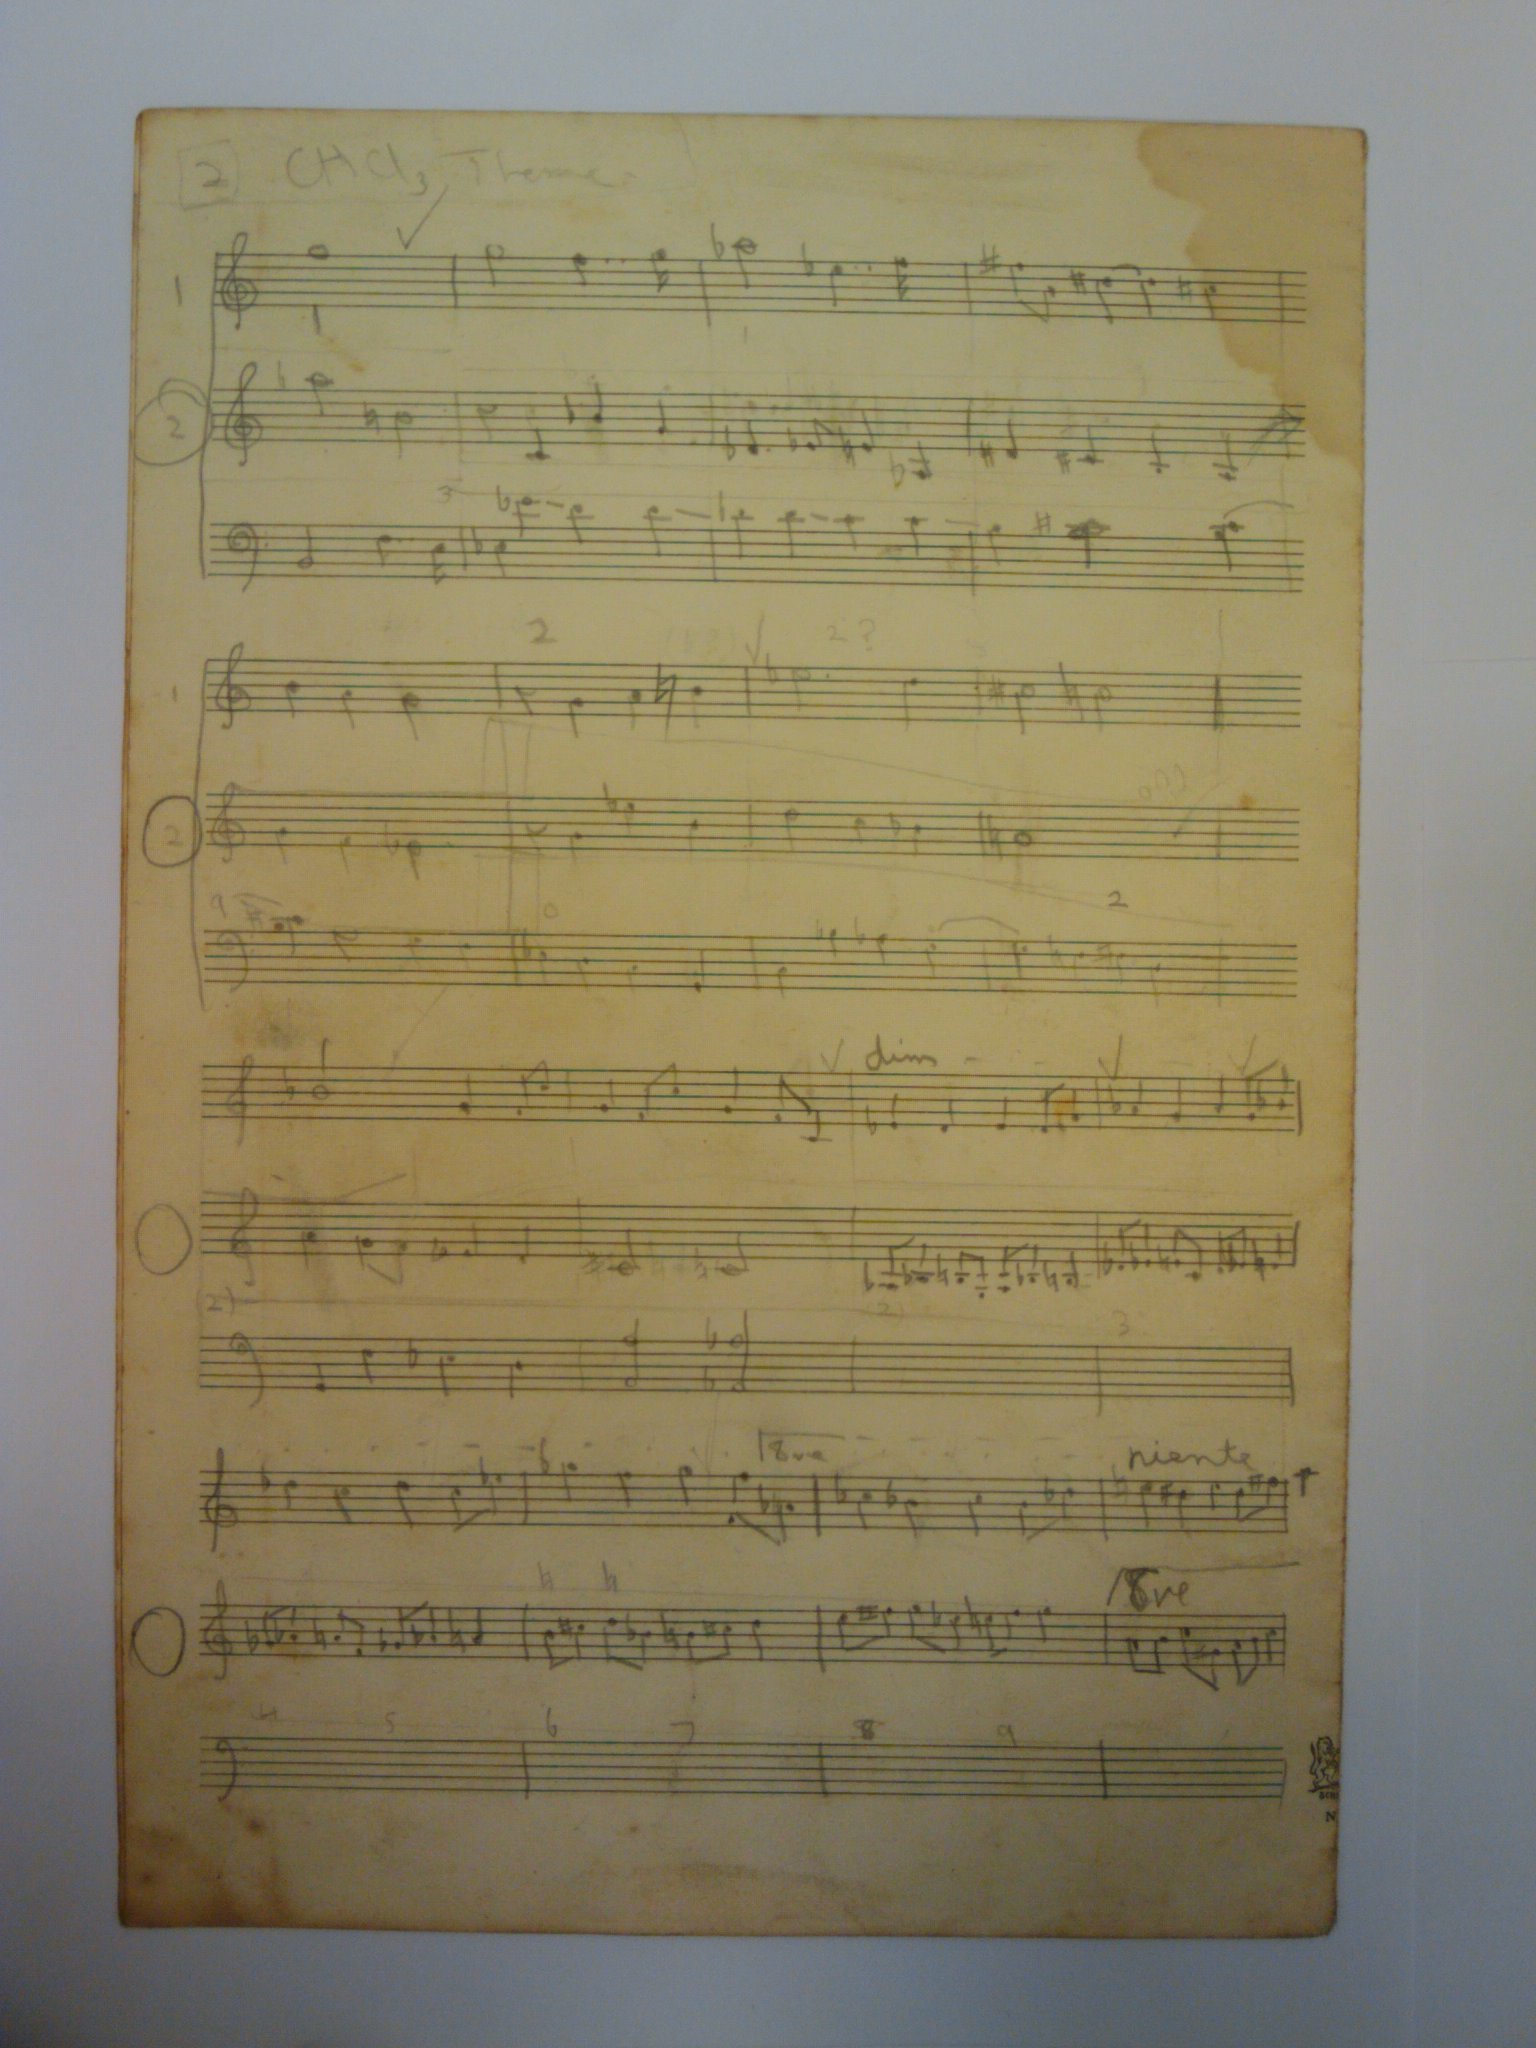 2 CHCl₃ Theme
1
1
2
3
2
2?
1
2
2
dim
2)
2)
3
8ve
niente
8ve
4 5 6 7 8 9